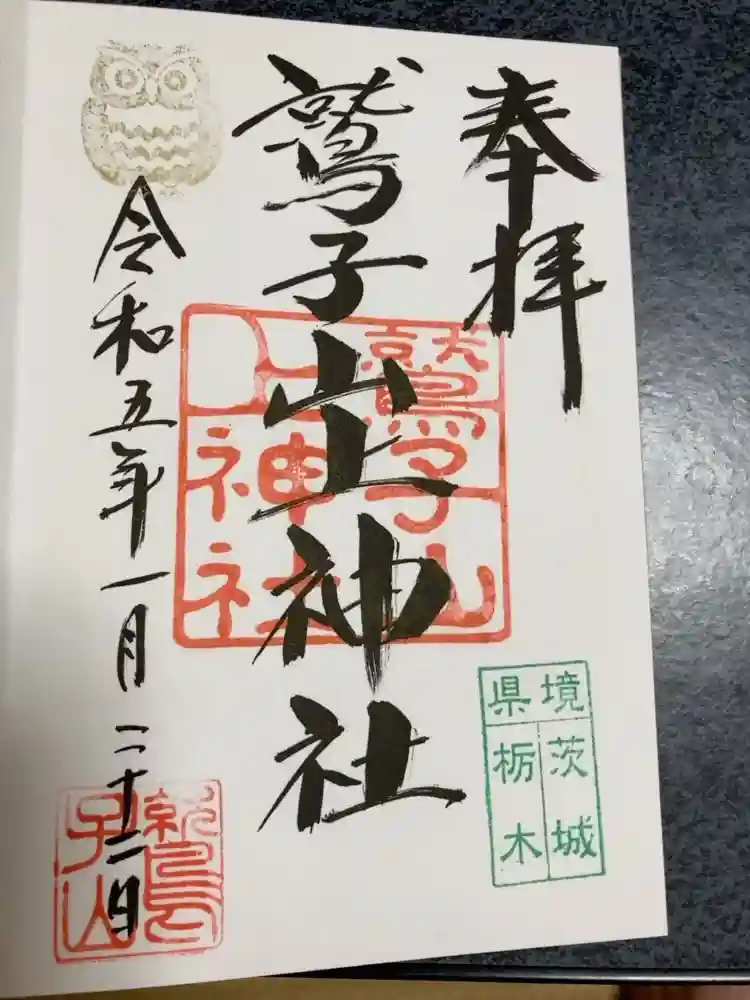 奉拝
鷲子山上神社
令和五年一月二十二日
鷲子山
上神社
県境
茨城
栃木
鷲
子山